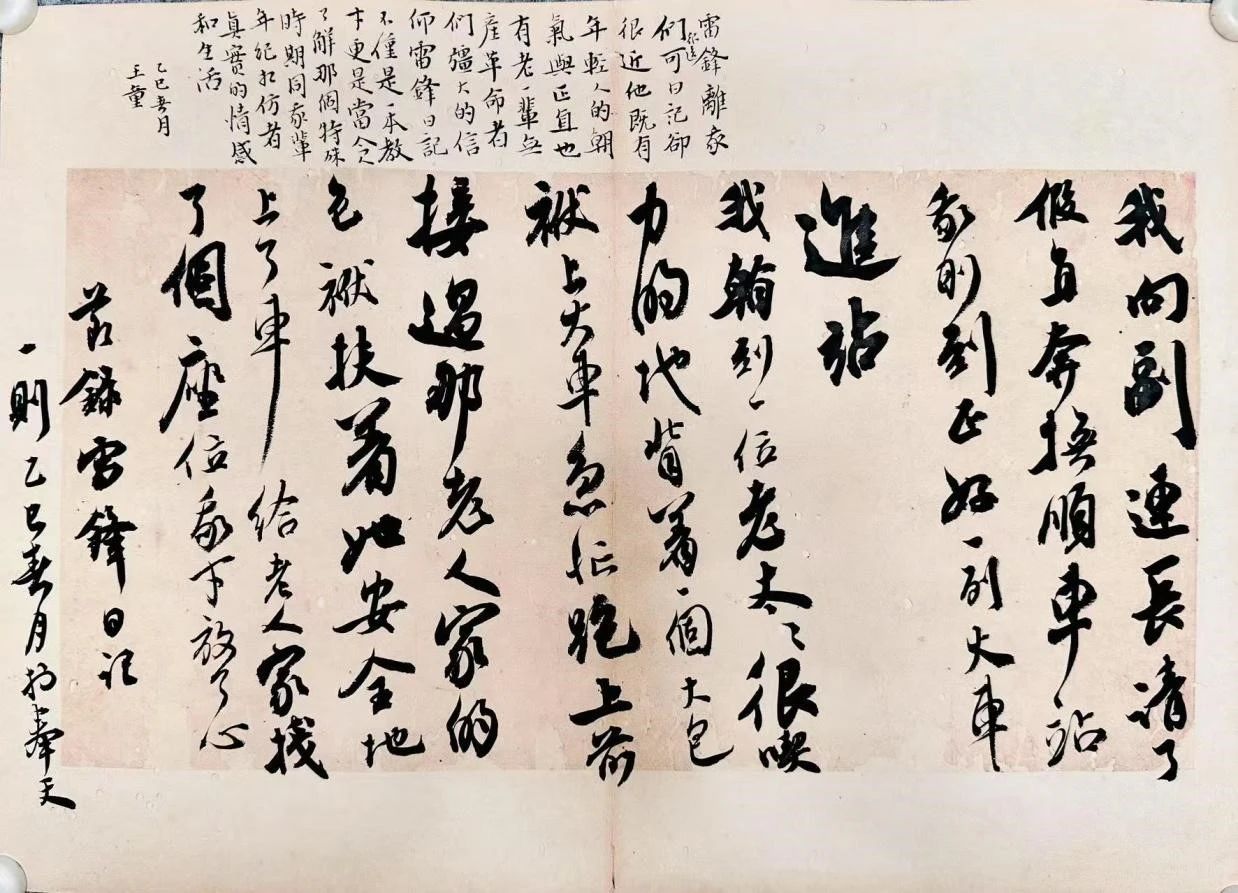 雷鋒離我
們可日記卻
很遠
很近他既有
年輕人的朝
氣與正直也
有老一輩無
產革命者
們彊大的信
仰雷鋒日記
不僅是一本教
更是當今
了解那個特殊
時期同我輩
年紀相仿者
真實的情感
和生活
乙巳春月
王童
我向副連長請了
假直奔撫順車站
我剛到正好一列火車
進站
我到一位老太〻很喫
力的地背着一個大包
袱上火車急忙跑上前
接過那老人家的
包袱扶着她安全地
上了車給老人家找
了個座位我才放了心
節錄雷鋒日記
一則乙巳春月於奉天